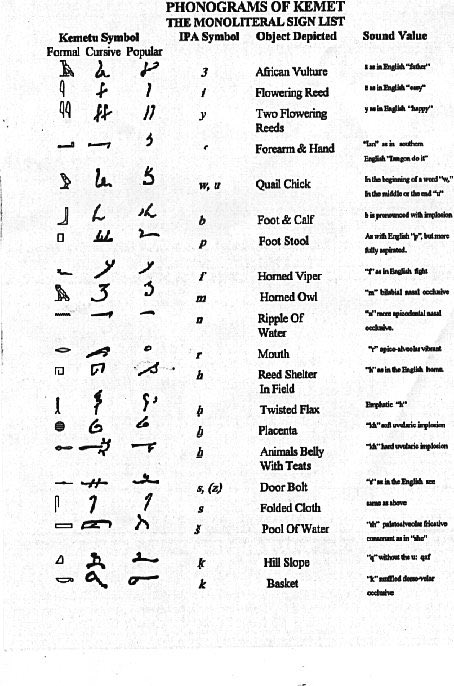 PHONOGRAMS OF KEMET
THE MONOLITERAL SIGN LIST
Kemetu Symbol IPA Symbol Object Depicted Sound Value
Formal Cursive Popular
3 African Vulture as in English "father"
Flowering Reed as in English "easy"
y Two Flowering y as in English "happy"
Reeds
Forearm & Hand as in southern
English "Iangon do it"
w, u Quail Chick In the beginning of a word "w,"
In the middle or the end "u"
b Foot & Calf b is pronounced with implosion
p Foot Stool As with English "p", but more
fully aspirated.
f Horned Viper "f" as in English fight
m Horned Owl "m" bilabial nasal occlusive
n Ripple Of "n" more apicodental nasal
Water occlusive.
r Mouth "r" apico-alveolar vibrant
h Reed Shelter "h" as in the English
In Field
ḥ Twisted Flax Emphatic "h"
ḫ Placenta "kh" soft uvularic implosion
ẖ Animals Belly "kh" hard uvularic implosion
With Teats
s, (z) Door Bolt as in the English see
s Folded Cloth same as above
š Pool Of Water "sh" palatoalveolar fricative
consonant as in "she"
ḳ Hill Slope "q" without the u:
k Basket "k" muffled dorso-velar
occlusive